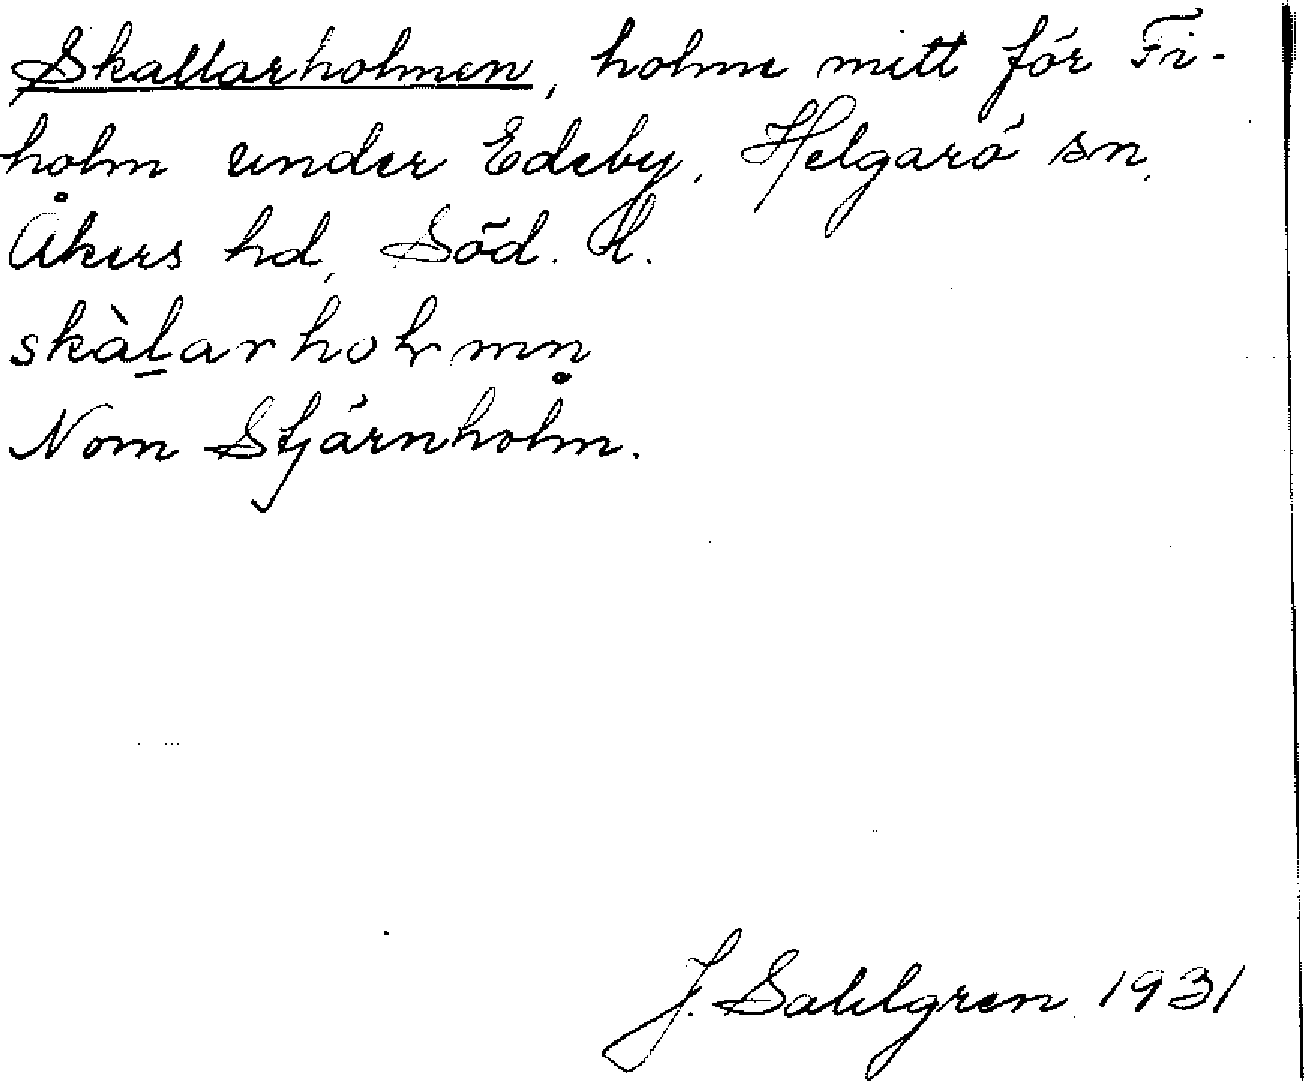 Skallarholmen, holme mitt för Fi-
holm under Edeby, Helgarö sn,
Åkers hd, Söd. l.
skàl̠arholmn̥
Nom Stjärnholm.
J. Sahlgren 1931